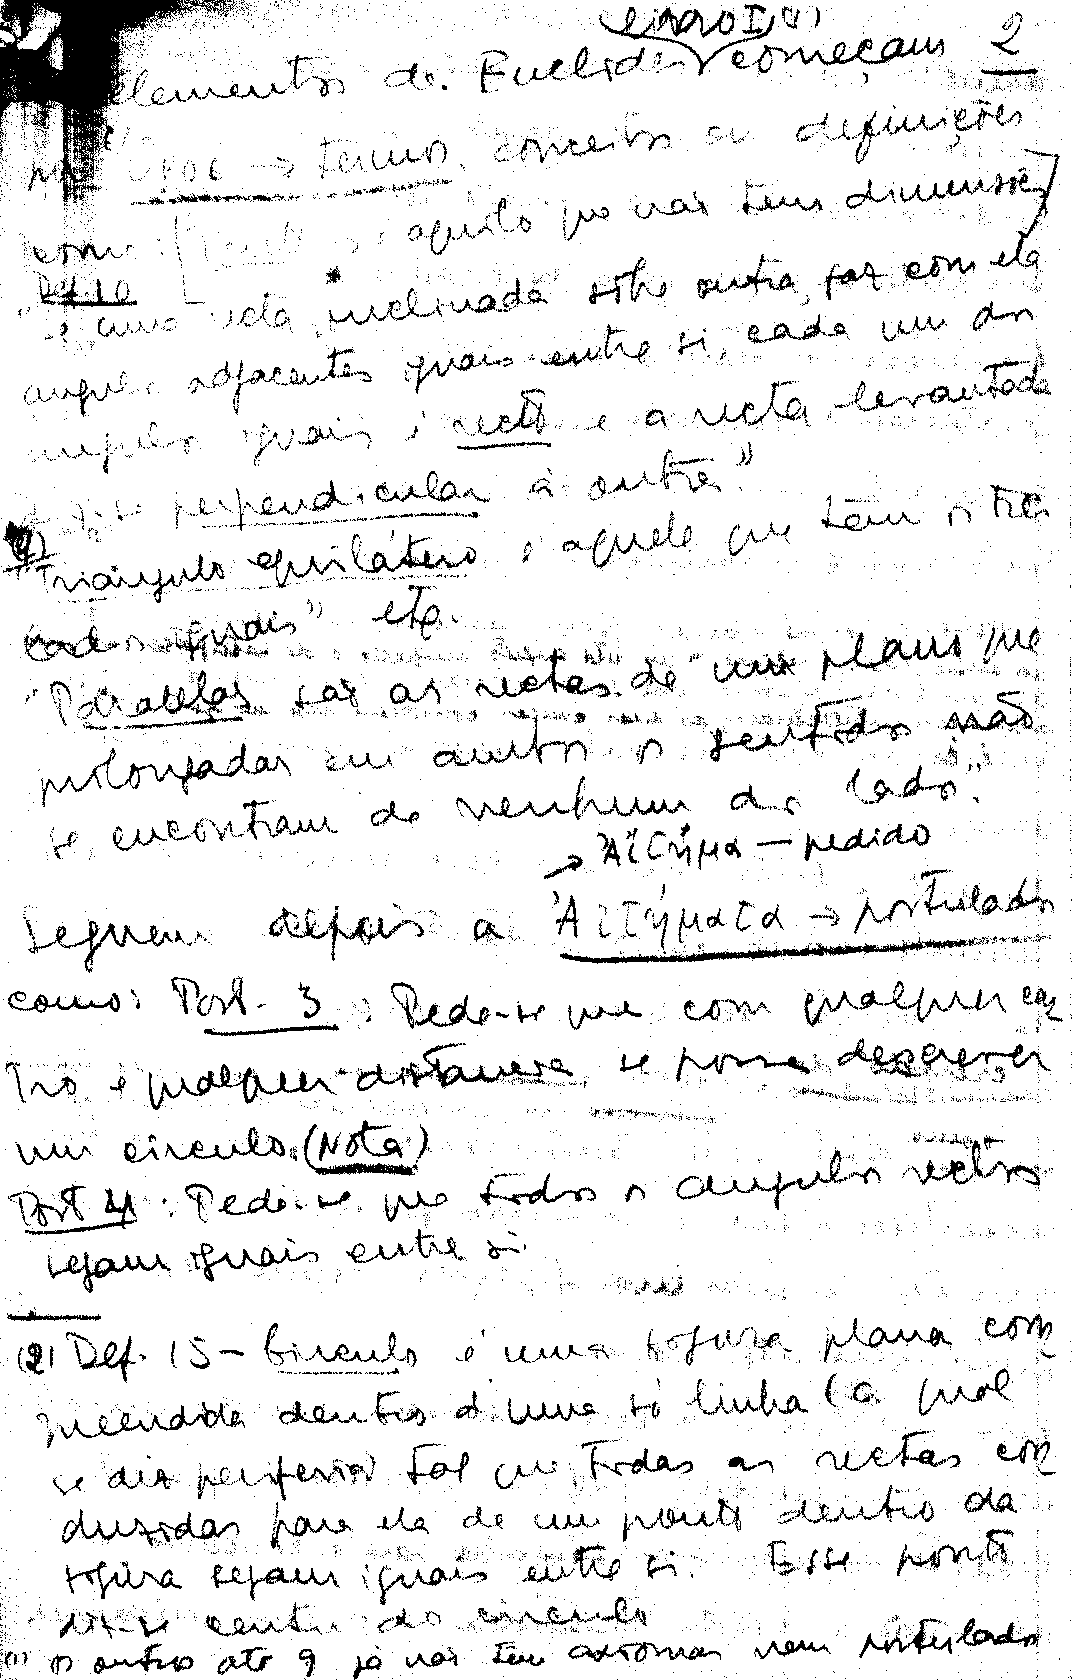 livro I, (1)
elementos de Euclides começam 2
por ὅροι → termos, conceitos ou definições
como ponto é aquilo que não tem dimensões
Def. 10
"e uma recta, inclinada sobre outra, faz com ela
angulos adjacentes iguais entre si, cada um dos
angulos iguais é recto e a recta levantada
diz-se perpendicular à outra."
"Triângulo equilátero é aquele que têm os três
lados iguais" etc.
"Paralelas são as rectas de um plano que
prolongadas em ambos os sentidos não
se encontram de nenhum dos lados".
→ Ἀίτημα — pedido
Seguem depois a Ἀιτήματα → postulados
como: Post. 3: Pede-se que com qualquer cen
tro e qualquer distancia se possa descrever
um circulo. (Nota)
Post 4: Pede-se que todos os angulos rectos
sejam iguais entre si
(2) Def. 15 – Circulo é uma figura plana com
preendida dentro d'uma só linha (a qual
se diz periferia) tal que todas as rectas con
duzidas para ela de um ponto dentro da
figura sejam iguais entre si. Esse ponto
diz-se centro do circulo
(1) os outros até 9 já não tem axiomas nem postulados